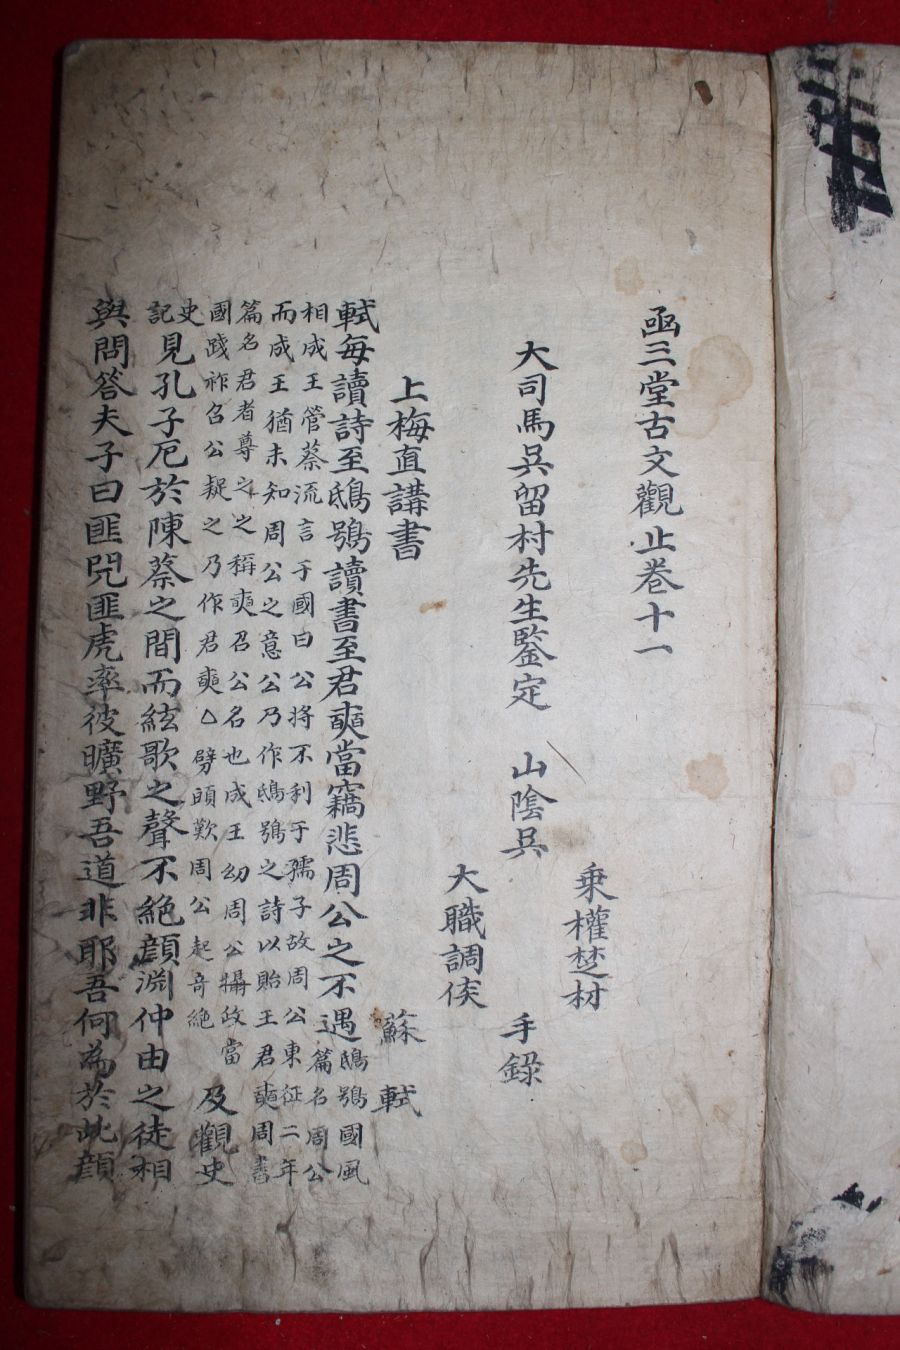 凾三堂古文觀止卷十一
乗權楚材
大司馬吳留村先生鑒定 山陰吳 手錄
大職調侯
上梅直講書
蘇軾
軾每讀詩至鴟鴞讀書至君奭當竊悲周公之不遇
鴟鴞國風
篇名周公
相成王管蔡流言于國曰公將不利于孺子故周公東征二年
而成王猶未知周公之意公乃作鴟鴞之詩以貽王君奭周書
篇名君者尊之之稱奭召公名也成王幼周公攝政當
國踐祚召公疑之乃作君奭△劈頭歎周公起奇絶
及觀史
史
記
見孔子厄於陳蔡之間而絃歌之聲不絶顔淵仲由之徒相
與問答夫子曰匪兕匪虎率彼曠野吾道非耶吾何為於此顔